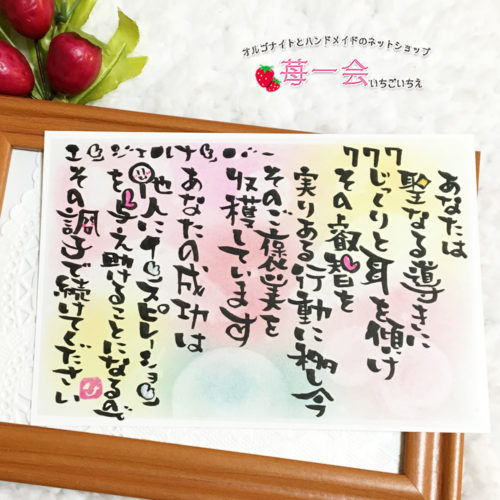 オルゴナイトとハンドメイドのネットショップ
苺一会 いちごいちえ
エンジェルナンバー777
あなたは
聖なる導きに
じっくりと耳を傾け
その叡智を
実りある行動に移し今
そのご褒美を
収穫しています
あなたの成功は
他人にインスピレーション
を与え助けることになるので
その調子で続けてください